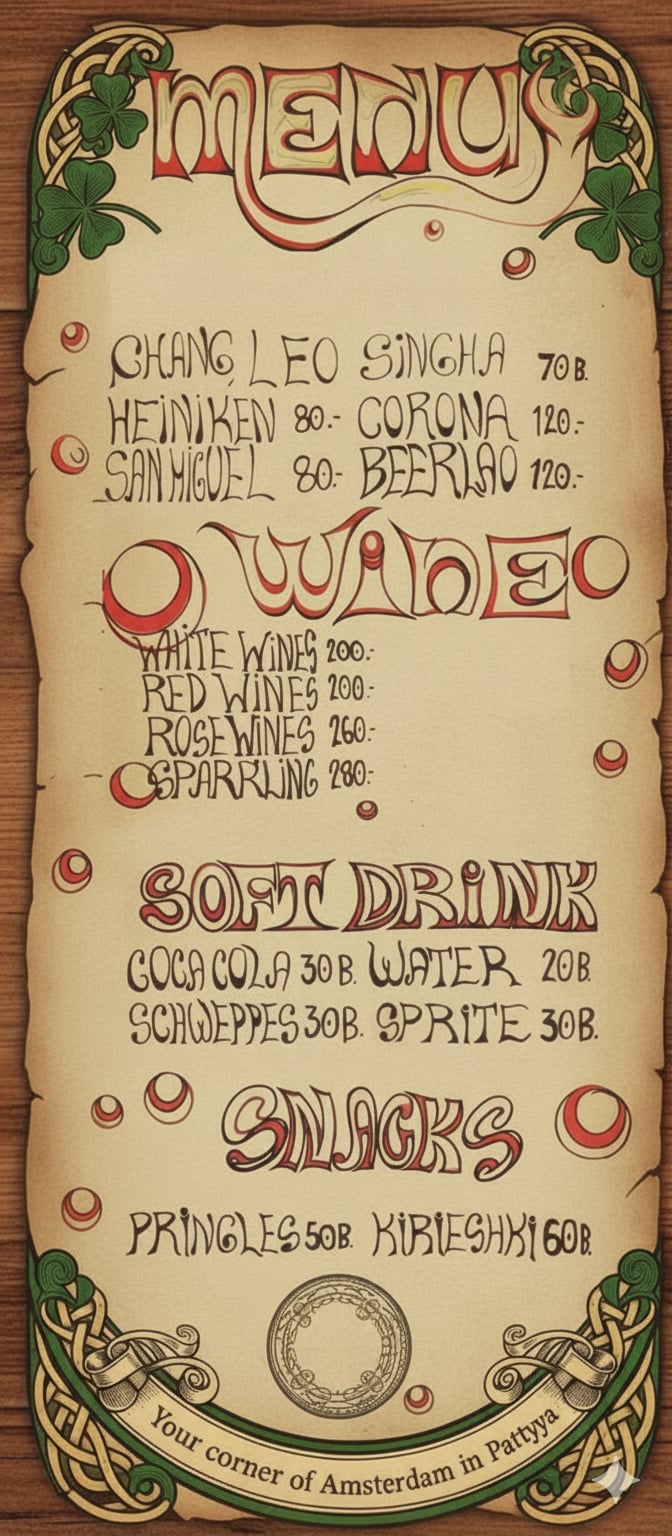 MENU
CHANG LEO SINGHA 70 B.
HEINIKEN 80.- CORONA 120.-
SAN MIGUEL 80.- BEERLAO 120.-
WINE
WHITE WINES 200.-
RED WINES 200.-
ROSE WINES 260.-
SPARRLING 280.-
SOFT DRINK
COCA COLA 30 B. WATER 20 B.
SCHWEPPES 30 B. SPRITE 30 B.
SNACKS
PRINGLES 50 B. KIRIESHKI 60 B.
Your corner of Amsterdam in Pattyya